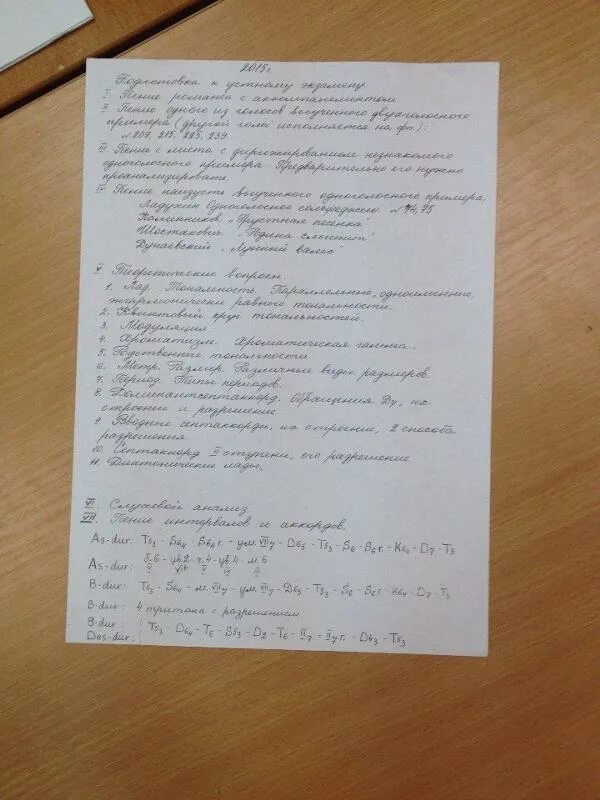 2015г
Подготовка к устному экзамену
I Пение романса с аккомпанементом
II Пение одного из голосов выученного двухголосного
примера (другой голос исполняется на фп.):
№ 209, 215, 225, 239
III Пение с листа с дирижированием незнакомого
одноголосного примера. Предварительно его нужно
проанализировать.
IV Пение наизусть выученного одноголосного примера:
Ладухин Одноголосное сольфеджио. № 74, 75
Калинников „Грустная песенка"
Шостакович - „Родина слышит"
Дунаевский - „Лунный вальс"
V Теоретические вопросы.
1. Лад. Тональность. Параллельные, одноименные,
энгармонически равные тональности.
2. Квинтовый круг тональностей.
3. Модуляция
4. Хроматизм. Хроматическая гамма.
5. Родственные тональности
6. Метр. Размер. Различные виды размеров.
7. Период. Типы периодов.
8. Доминантсептаккорд. Обращения D7, их
строение и разрешение
9. Вводные септаккорды, их строение, 2 способа
разрешения.
10. Септаккорд II ступени, его разрешение
11. Диатонические лады.
VI Слуховой анализ
VII. Пение интервалов и аккордов.
As-dur: T53 - S64 - S64 г. - ум. VII7 - D65 - T53 - S6 - S6 г. - K64 - D7 - T3
As-dur: б.6 - ув.2 - ч.4 - ув.4 - м.6
V VIb V IV III
B-dur: T53 - S64 - м. VII7 - ум. VII7 - D65 - T53 - S6 - S6 г. - K64 - D7 - T3
B-dur: 4 тритона с разрешением
B-dur: T53 - D64 - T6 - S53 - D2 - T6 - II7 - II7 г. - D43 - T53
Des-dur: